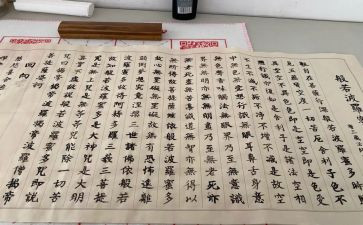 般若波
觀自在菩薩行深般若波羅蜜多時
照見五蘊皆空度一切苦厄舍利子色
不異空空不異色色即是空空即是色受
想行識亦復如是舍利子是諸法空相
不生不滅不垢不淨不增不減是故空
中無色無受想行識無眼耳鼻舌身意
無色聲香味觸法無眼界乃至無意識
界無無明亦無無明盡乃至無老死亦
無老死盡無苦集滅道無智亦無得以
無所得故菩提薩埵依般若波羅蜜多
故心無罣礙無罣礙故無有恐怖遠離
顛倒夢想究竟涅槃三世諸佛依般若
波羅蜜多故得阿耨多羅三藐三菩提
故知般若波羅蜜多是大神咒是大明
咒是無上咒是無等等咒能除一切苦
真實不虛故說般若波羅蜜多咒即說
咒曰揭帝揭帝波羅揭帝波羅僧揭帝
菩提薩婆訶
回向